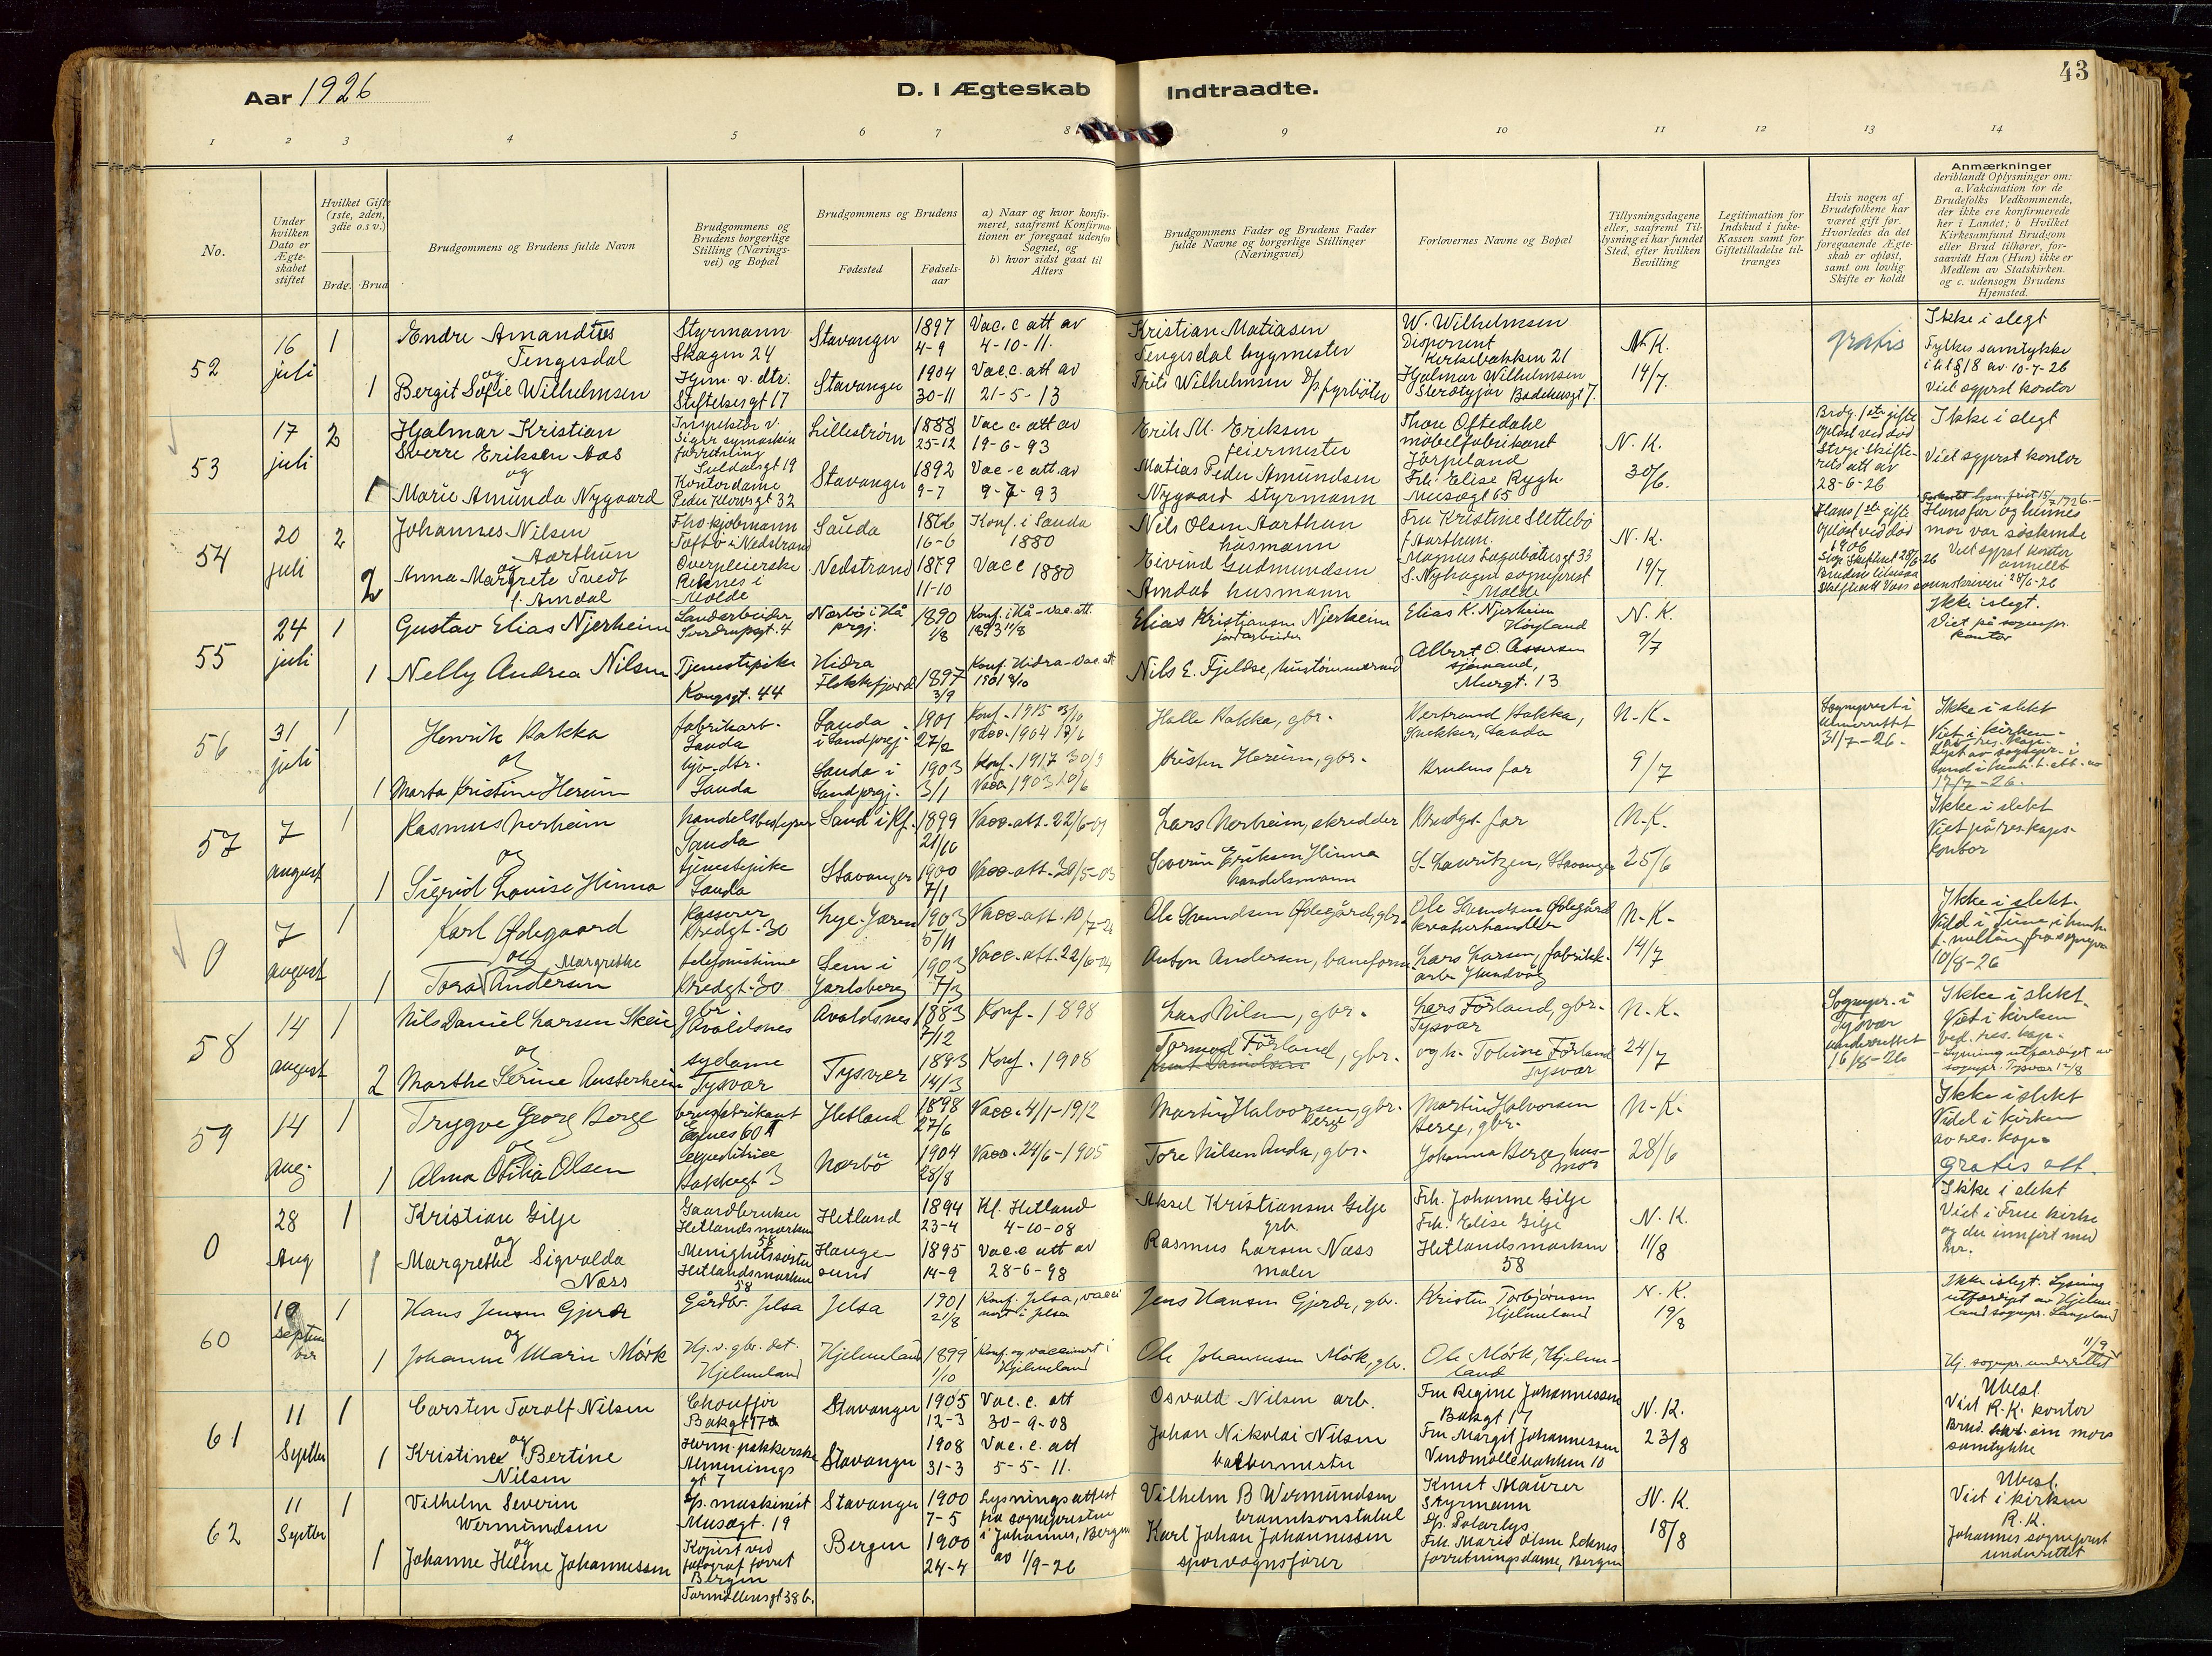 43
Aar 1926
D. I Ægteskab Indtraadte.
1 2 3 4 5 6 7 8 9 10 11 12 13 14
No.
Under hvilken Dato er Ægteskabet stiftet
Hvilket Gifte (1ste, 2den, 3die o.s.v.)
Brdg. Brud
Brudgommens og Brudens fulde Navn
Brudgommens og Brudens borgerlige Stilling (Næringsvei) og Bopæl
Brudgommens og Brudens
Fødested
Fødselsaar
a) Naar og hvor konfirmeret, saafremt Konfirmationen er foregaat udenfor Sognet, og
b) hvor sidst gaat til Alters
Brudgommens Fader og Brudens Fader fulde Navne og borgerlige Stillinger (Næringsvei)
Forlovernes Navne og Bopæl
Tillysningsdagene eller, saafremt Tillysning ei har fundet Sted, efter hvilken Bevilling
Legitimation for Indskud i Enke-Kassen samt for Giftetilladelse tiltrænges
Hvis nogen af Brudefolkene har været gift før. Hvorledes da det foregaaende Ægteskab er opløst, samt om lovlig Skifte er holdt
Anmærkninger
deriblandt Oplysninger om: a. Vakcination for de Brudefolks Vedkommende, der ikke ere konfirmerede her i Landet; b. Hvilket Kirkesamfund Brudgom eller Brud tilhører, forsaavidt Han (Hun) ikke er Medlem av Statskirken. og c. udensogn Brudens Hjemsted.
52
16 juli
1
Endre Amandius Tengesdal
Styrmann Skagen 24
Stavanger
1897 4-9
Vac. c att av 4-10-11.
Kristian Matiasen Tengesdal bygmester
W. Wilhelmsen Disponent Kirkebakken 21
N.K. 14/7.
gratis
Ikke i slegt
Fylkes samtykke i til § 18 av 10-7-26
Viet sgprst kontor
og
1
Bergit Sofie Wilhelmsen
Hjem. v. dtr. Stiftelsesgt 17
Stavanger
1904 30-11
Vac.c. att av 21-5-13
Frits Wilhelmsen D/p fyrbøter
Hjalmar Wilhelmsen Badehusgt 7.
53
17 juli
2
Hjalmar Kristian Sverre Eriksen Aas
Inspektør v. Siger symaskin forretning Suldalsgt 19
Lillestrøm
1888 25-12
Vac c att av 19-6-93
Erik M. Eriksen feiermester
Thore Oftedahl møbelfabrikant Jørpeland
N.K. 30/6.
Brdg. 1ste gifte opløst ved død
Stvgr. skifteretts att av 28-6-26
Ikke i slegt
Viet sgprst kontor
og
1
Marie Amunda Nygaard
Kontordame Peder Klowsgt 32
Stavanger
1892 9-7
Vac-c att. av 9-7-93
Matias Peder Amundsen Nygaard styrmann
Frk. Elise Rygh Musegt 65
54
20 juli
2
Johannes Nilsen Aarthun
Tføtø i Nedstrand
Sauda
1866 16-6
Konf. i Sauda 1880
Nils Olsen Aarthun husmann
Fru Kristine Slettebø f. Aarthun. Magnus Lagabøtersgt 33
N.K. 19/7.
Hans 1ste gifte opløst ved død 1906
Hans far og hennes mor var søskende
Viet sgprst kontor
og
2
Anna Margrete Tvedt f. Amdal
Overpleierske Reknes i Molde
Nedstrand
1879 11-10
Vacc 1880
Eivind Gudmundsen Amdal husmann
S. Nyhagen sogneprest i Molde
55
24 juli
1
Gustav Elias Njerheim
Landarbeider Sverdrupsgt. 4
Nærbø i Hå prgj.
1890 1/8
Konf. i Hå - vac. att. 1893 11/8
Elias Kristiansen Njerheim jordarbeider
Elias K. Njerheim Høyland
N.K. 9/7
Ikke i slegt.
Viet på sognepr. kontor
1
Nelly Andrea Nilsen
Tjenestepike Kongsgt. 44
Hidra Flekkefjord
1897 3/9
Konf. Hidra - Vac. att. 1901
Nils E. Fjeldse, hustømmermand
Albert O. Assersen sjømand, Murgt. 13
56
31 juli
1
Henrik Bakka
fabrikarb. Sauda
Sauda i Sand prgj.
1901 27/2
Konf. 1915 vacc. 1904
Halle Bakka, gbr.
Bertrand Bakka, Snekker, Sauda
N-K- 9/7
Sogneprest i underrettet 31/7-26.
Ikke i slekt
Viet i kirken - av res. kap.
og
1
Marta Kristine Hereim
hjv. dtr. Sauda
Sauda i Sand prgj.
1903 3/1
Konf. 1917 30/9
Vacc 1903 10/6
Kristen Hereim, gbr.
Brudens far
57
7 august
1
Rasmus Nerheim
handelsbestyrer Sauda
Sand i Rf.
1899 21/10
Vacc-att. 22/6-01
Lars Nerheim, skredder
Brudgs. far
N-K- 25/6
Ikke i slekt
Viet på res. kaps. kontor
og
1
Sigrid Louise Hinna
tjenestepike Sauda
Stavanger
1900 7/1
Vacc-att. 20/5-03
Severin Eriksen Hinna handelsmann
S. Lauritzen, Stavanger
0
7 august
1
Karl Ødegaard
Kasserer Bredgt. 30
Lye-Jæren
1903 5/11
Vacc-att. 10/7-24
Ole Svendsen Ødegård, gbr.
Ole Svendsen Ødegård kreaturhandler
N-K- 14/7
Ikke i slekt.
10/8-26
og
1
Tora Margrethe Andersen
telefonistinne Bredgt. 30
Sem i Jarlsberg
1903 7/3
Vacc.-att. 22/6-04
Anton Andersen, baneform.
Lars Larsen, fabrikkarb. Hundvåg
58
14 august
1
Nils Daniel Larsen Skeie
gbr Avaldsnes
Avaldsnes
1883 7/12
Konf. 1898
Lars Nilsen, gbr.
Lars Førland, gbr. Tysvær
N-K- 24/7
Sognepr. i Tysvær underrettet 16/8-26
Ikke i slekt.
Viet i kirken ved res. kap.
- Lysning utferdiget av sognepr. Tysvær 12/8
og
2
Marthe Serine Austerheim
sydame Tysvær
Tysvær
1893 14/3
Konf. 1908
Tormod Førland, gbr.
vgh. Tobine Førland Tysvær
59
14 aug.
1
Trygve Georg Berge
brusfabrikant Egnes 60 A
Hetland
1898 27/6
Vacc. 4/1-1912
Martin Halvorsen Berge, gbr.
Martin Halvorsen Berge, gbr.
N-K- 28/6
Ikke i slekt
Vidd i kirken av res. kap.
gratis att.
og
1
Alma Otilia Olsen
Expeditrice Bakkegt 3
Nærbø
1904 28/8
Vacc. 24/6-1905
Tore Nilsen Anda, gbr.
Johanna Berge, husmor
0
28 Aug
1
Kristian Gilje
Gaardbruker Hetlandsmarken 58
Hetland
1894 23-4
Kf. Hetland 4-10-08
Aksel Kristiansen Gilje grb.
Frk. Johanne Gilje
Frk. Elise Gilje
Hetlandsmarken 58
N.K. 11/8
Ikke i slekt
Viet i Frue kirke og der innført med nr.
og
1
Margrethe Sigvalda Næss
Menighetssøster Hetlandsmarken 58
Haugesund
1895 14-9
Vac.c att av 28-6-98
Rasmus Larsen Næss maler
60
10 september
1
Hans Jensen Gjerde
Gårdbr. Jelsa
Jelsa
1901 21/8
Konf. Jelsa, vaccinert i Jelsa
Jens Hansen Gjerde, gbr.
Kristen Torbjørnsen Hjelmeland
N.K. 19/8
Ikke i slegt. Lysning utferdiget av Hjelmeland sognepr. Langeland
11/9
Hj. sognepr. underrettet
og
1
Johanne Marie Mørk
Hj. v. gbr. dat. Hjelmeland
Hjelmeland
1899 1/10
Konf. og vaccinert i Hjelmeland
Ole Johannessen Mørk, gbr.
Ole Mørk, Hjelmeland
61
11 Septbr
1
Carsten Toralf Nilsen
Chouffør Bakgt 17a
Stavanger
1905 12-3
Vac. c. att 30-9-08
Osvald Nilsen arb.
Fru Regine Johannessen Bakgt 17
N.K. 23/8
Ubesl.
Viet R.K. kontor
Brud. sin mors samtykke
og
1
Kristine Bertine Nilsen
Herm. pakkerske Almenningsgt 7
Stavanger
1908 31-3
Vac. c. att 5-5-11.
Johan Nikolai Nilsen valsermester
Fru Margit Johannessen Vindmøllebakken 10
62
11 Septbr
1
Vilhelm Severin Wermundsen
D/p. maskinist Musegt. 19
Stavanger
1900 7-5
Lysningsattest fra sognepresten i Johannes, Bergen av 1/9-26
Vilhelm B Wermundsen brannkonstabel
Knut Maurer Styrmann D/p. Polarlys
N.K. 18/8
Ubesl.
Viet i kirken R.K.
Johannes sogneprest underrettet
og
1
Johanne Helene Johannessen
Kopist ved fotograf forret Bergen Tormøllensgt 38 b.
Bergen
1900 24-4
Karl Johan Johannessen sporvognsfører
Frk. Marie Olsen Loknes forretningsdame, Bergen